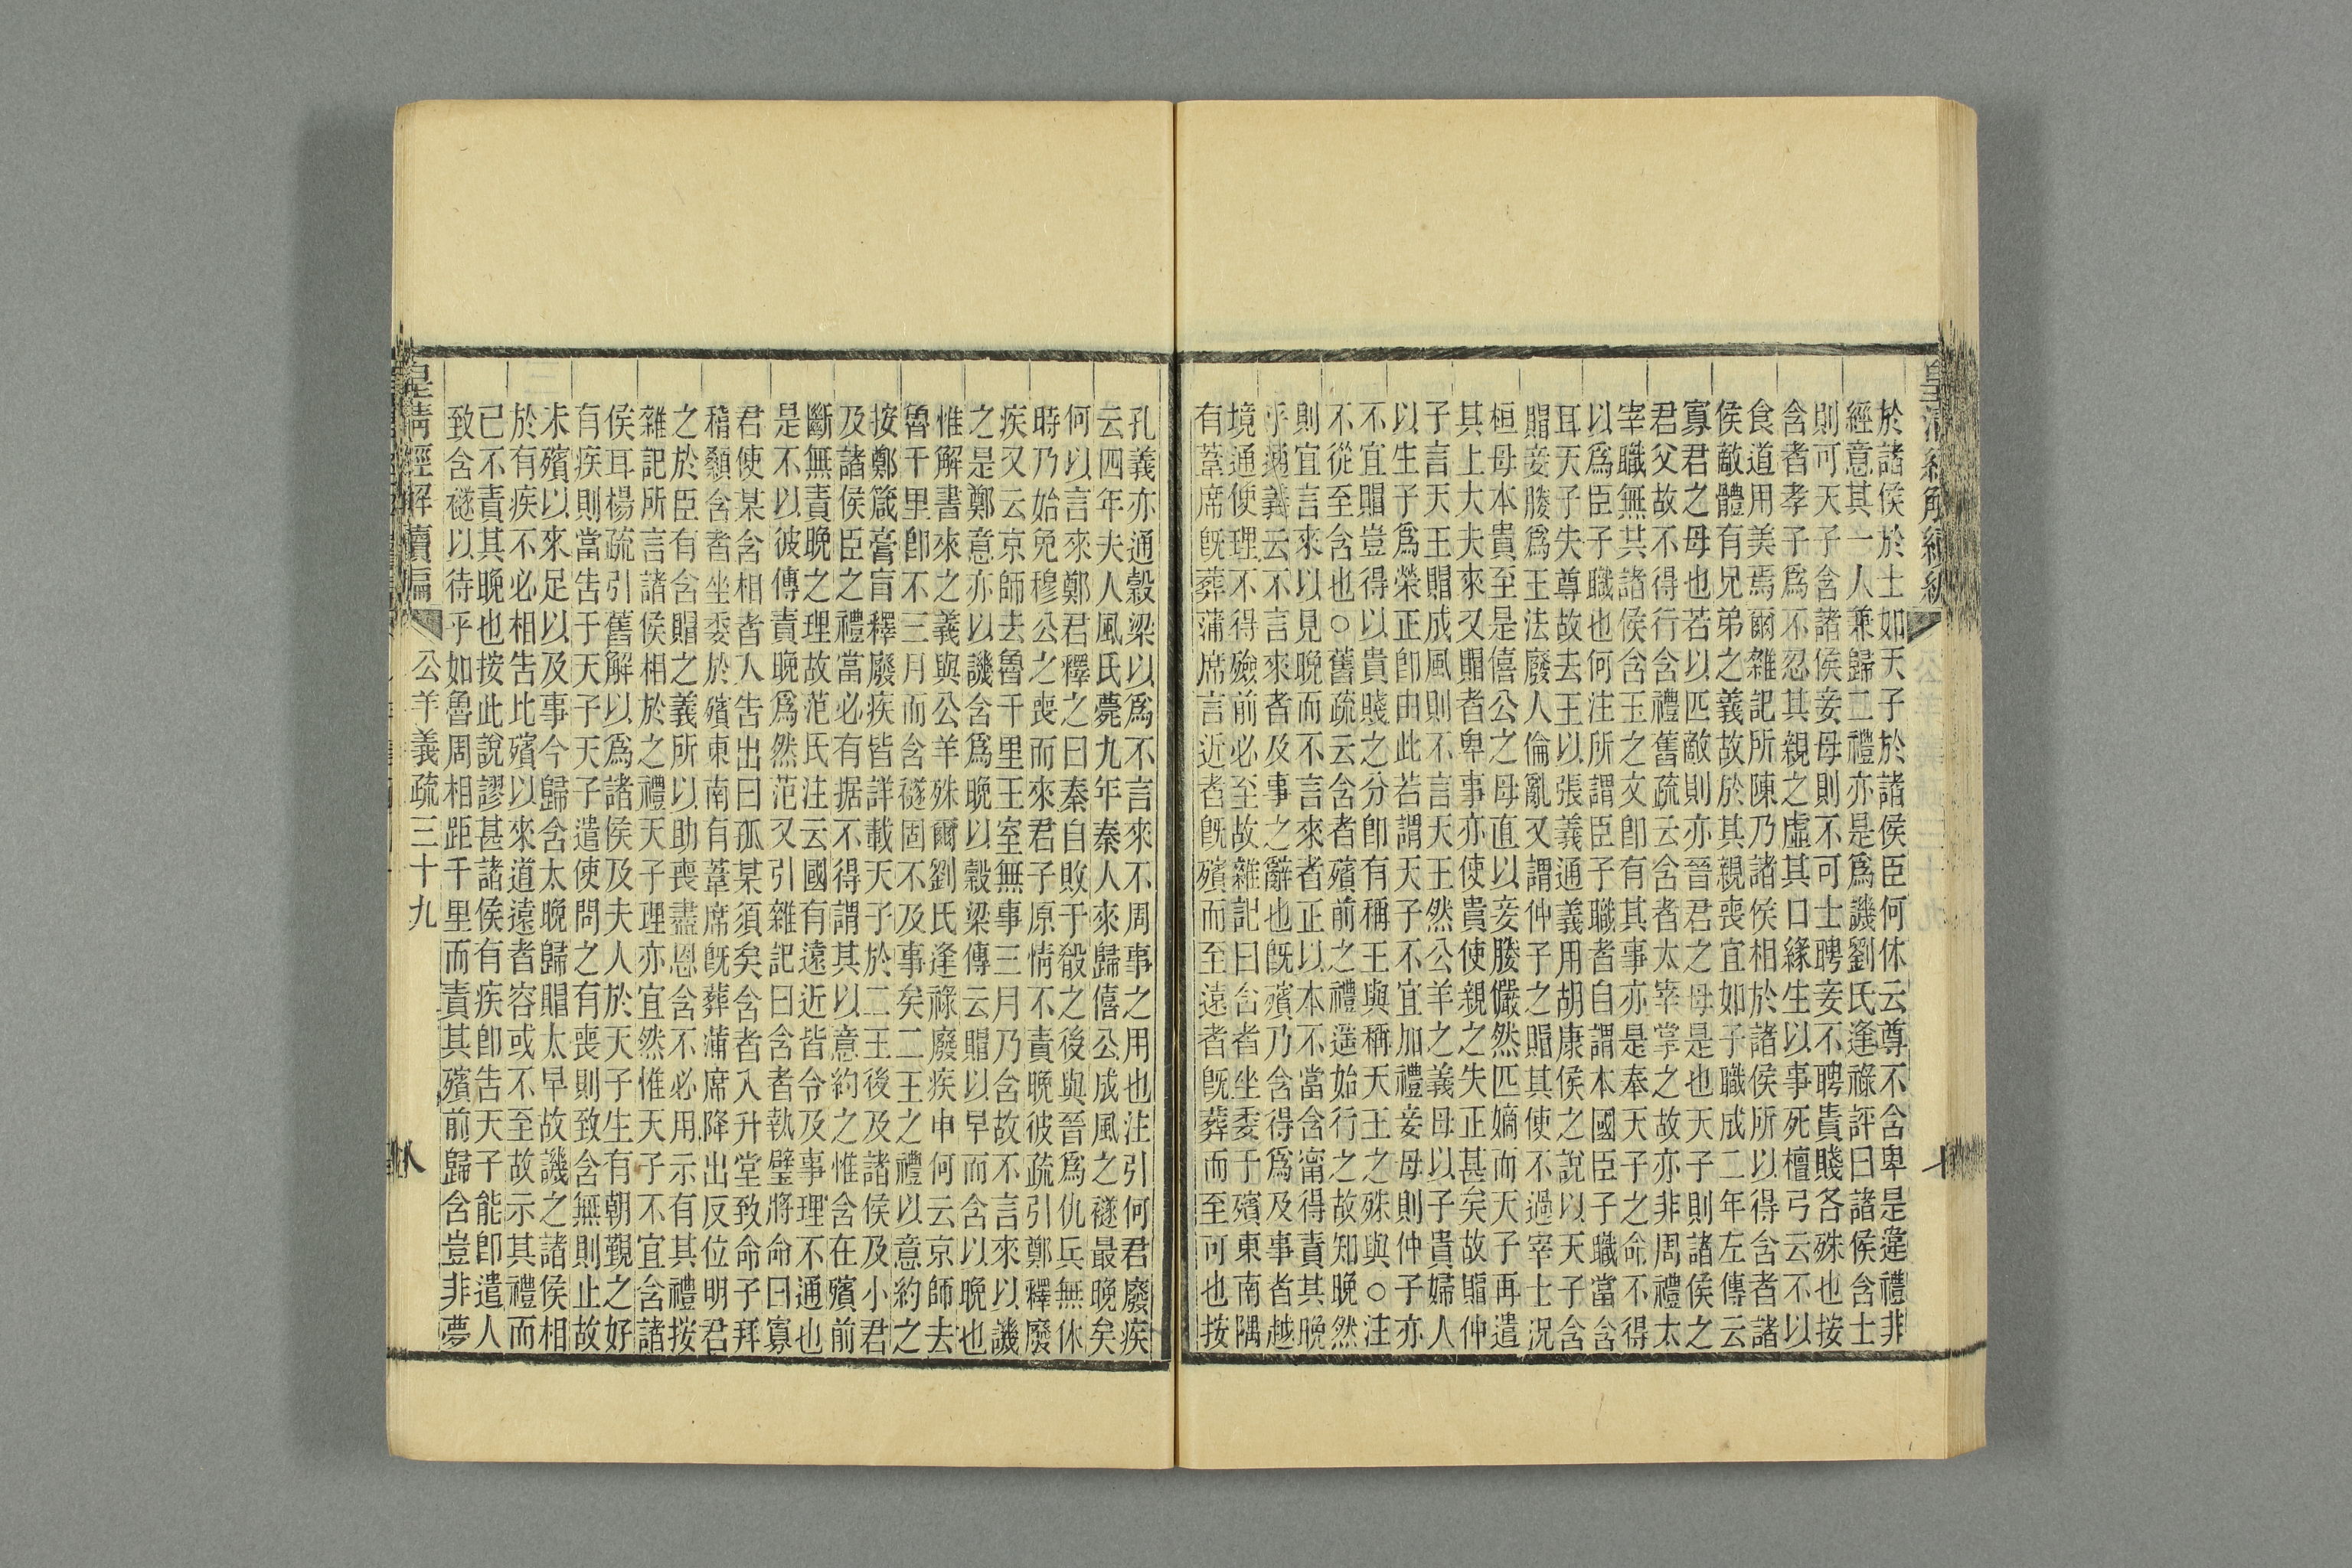 皇清經解續編
於諸侯於士如天子於諸侯臣何休云尊不含卑是違禮非
經意其一人兼歸二禮亦是爲譏劉氏逢祿評曰諸侯含士
則可天子含諸侯妾母則不可士聘妾不聘貴賤各殊也按
含者孝子爲不忍其親之虛其口緣生以事死檀弓云不以
食道用美焉爾雜記所陳乃諸侯相於諸侯所以得含者諸
侯敵體有兄弟之義故於其親喪宜如子職成二年左傳云
寡君之母也若以匹敵則亦晉君之母是也天子則諸侯之
君父故不得行含禮舊疏云含者太宰掌之故亦非周禮太
宰職無其諸侯含玉之文卽有其事亦是奉天子之命不得
以爲臣子職也何注所謂臣子職者自謂本國臣子職當含
耳天子失尊故去王以張義通義用胡康侯之說以天子含
賵妾媵爲王法廢人倫亂又謂仲子之賵其使不過宰士況
桓母本貴至是僖公之母直以妾媵儼然匹嫡而天子再遣
其上大夫來又賵者卑事亦使貴使親之失正甚矣故賵仲
子言天王賵成風則不言天王然公羊之義母以子貴婦人
以生子爲榮正卽由此若謂天子不宜加禮妾母則仲子亦
不宜賵豈得以貴賤之分卽有稱王與稱天王之殊與○注
不從至含也○舊疏云含者殯前之禮遥始行之故知晚然
則宜言來以見晚而不言來者正以本不當含甯得責其晚
乎通義云不言來者及事之辭也旣殯乃含得爲及事者越
境通使理不得殮前必至故雜記曰含者坐委于殯東南隅
有葦席旣葬蒲席言近者旣殯而至遠者旣葬而至可也按
孔義亦通穀梁以爲不言來不周事之用也注引何君廢疾
云四年夫人風氏薨九年秦人來歸僖公成風之襚最晚矣
何以言來鄭君釋之曰秦自敗于殽之後與晉爲仇兵無休
時乃始免穆公之喪而來君子原情不責晚彼疏引鄭釋廢
疾又云京師去魯千里王室無事三月乃含故不言來以譏
之是鄭意亦以譏含爲晚以穀梁傳云賵以早而含以晚也
惟解書來之義與公羊殊爾劉氏逢祿廢疾申何云京師去
魯千里卽不三月而含襚固不及事矣二王之禮以意約之
按鄭箴膏盲釋廢疾皆詳載天子於二王後及諸侯及小君
及諸侯臣之禮當必有据不得謂其以意約之惟含在殯前
斷無責晚之理故范氏注云國有遠近皆令及事理不通也
是不以彼傳責晚爲然范又引雜記曰含者執璧將命曰寡
君使某含相者入告出曰孤某須矣含者入升堂致命子拜
稽顙含者坐委於殯東南有葦席旣葬蒲席降出反位明君
之於臣有含賵之義所以助喪盡恩含不必用示有其禮按
雜記所言諸侯相於之禮天子理亦宜然惟天子不宜含諸
侯耳楊疏引舊解以爲諸侯及夫人於天子生有朝覲之好
有疾則當告于天子天子遣使問之有喪則致含無則止故
未殯以來足以及事今歸含太晚歸賵太早故譏之諸侯相
於有疾不必相告比殯以來道遠者容或不至故示其禮而
已不責其晚也按此說謬甚諸侯有疾卽告天子能卽遣人
致含襚以待乎如魯周相距千里而責其殯前歸含豈非夢
皇淸經解續編
公羊義疏三十九
八